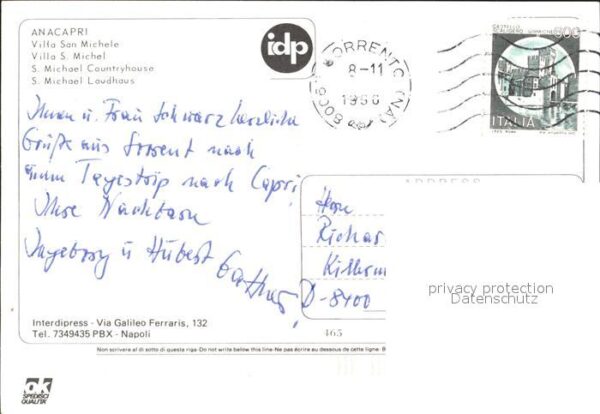 ANACAPRI
Villa San Michele
Villa S. Michel
S. Michael Countryhouse
S. Michael Landhaus
idp
SORRENTO (NA)
8-11
1988
CASTELLO
600
ITALIA
Ihnen u. Frau Schwarz herzliche
Grüße aus Sorrent nach
einem Tagestrip nach Capri,
Ihre Nachbarn
Ingeborg u Hubert
ADDRESS
Herrn
Richar
D-8400
privacy protection
Datenschutz
Interdipress - Via Galileo Ferraris, 132
Tel. 7349435 PBX - Napoli
465
Non scrivere al di sotto di questa riga-Do not write below this line-Ne pas écrire au dessous de cette ligne
ok
SPEDISCI
QUALITA'